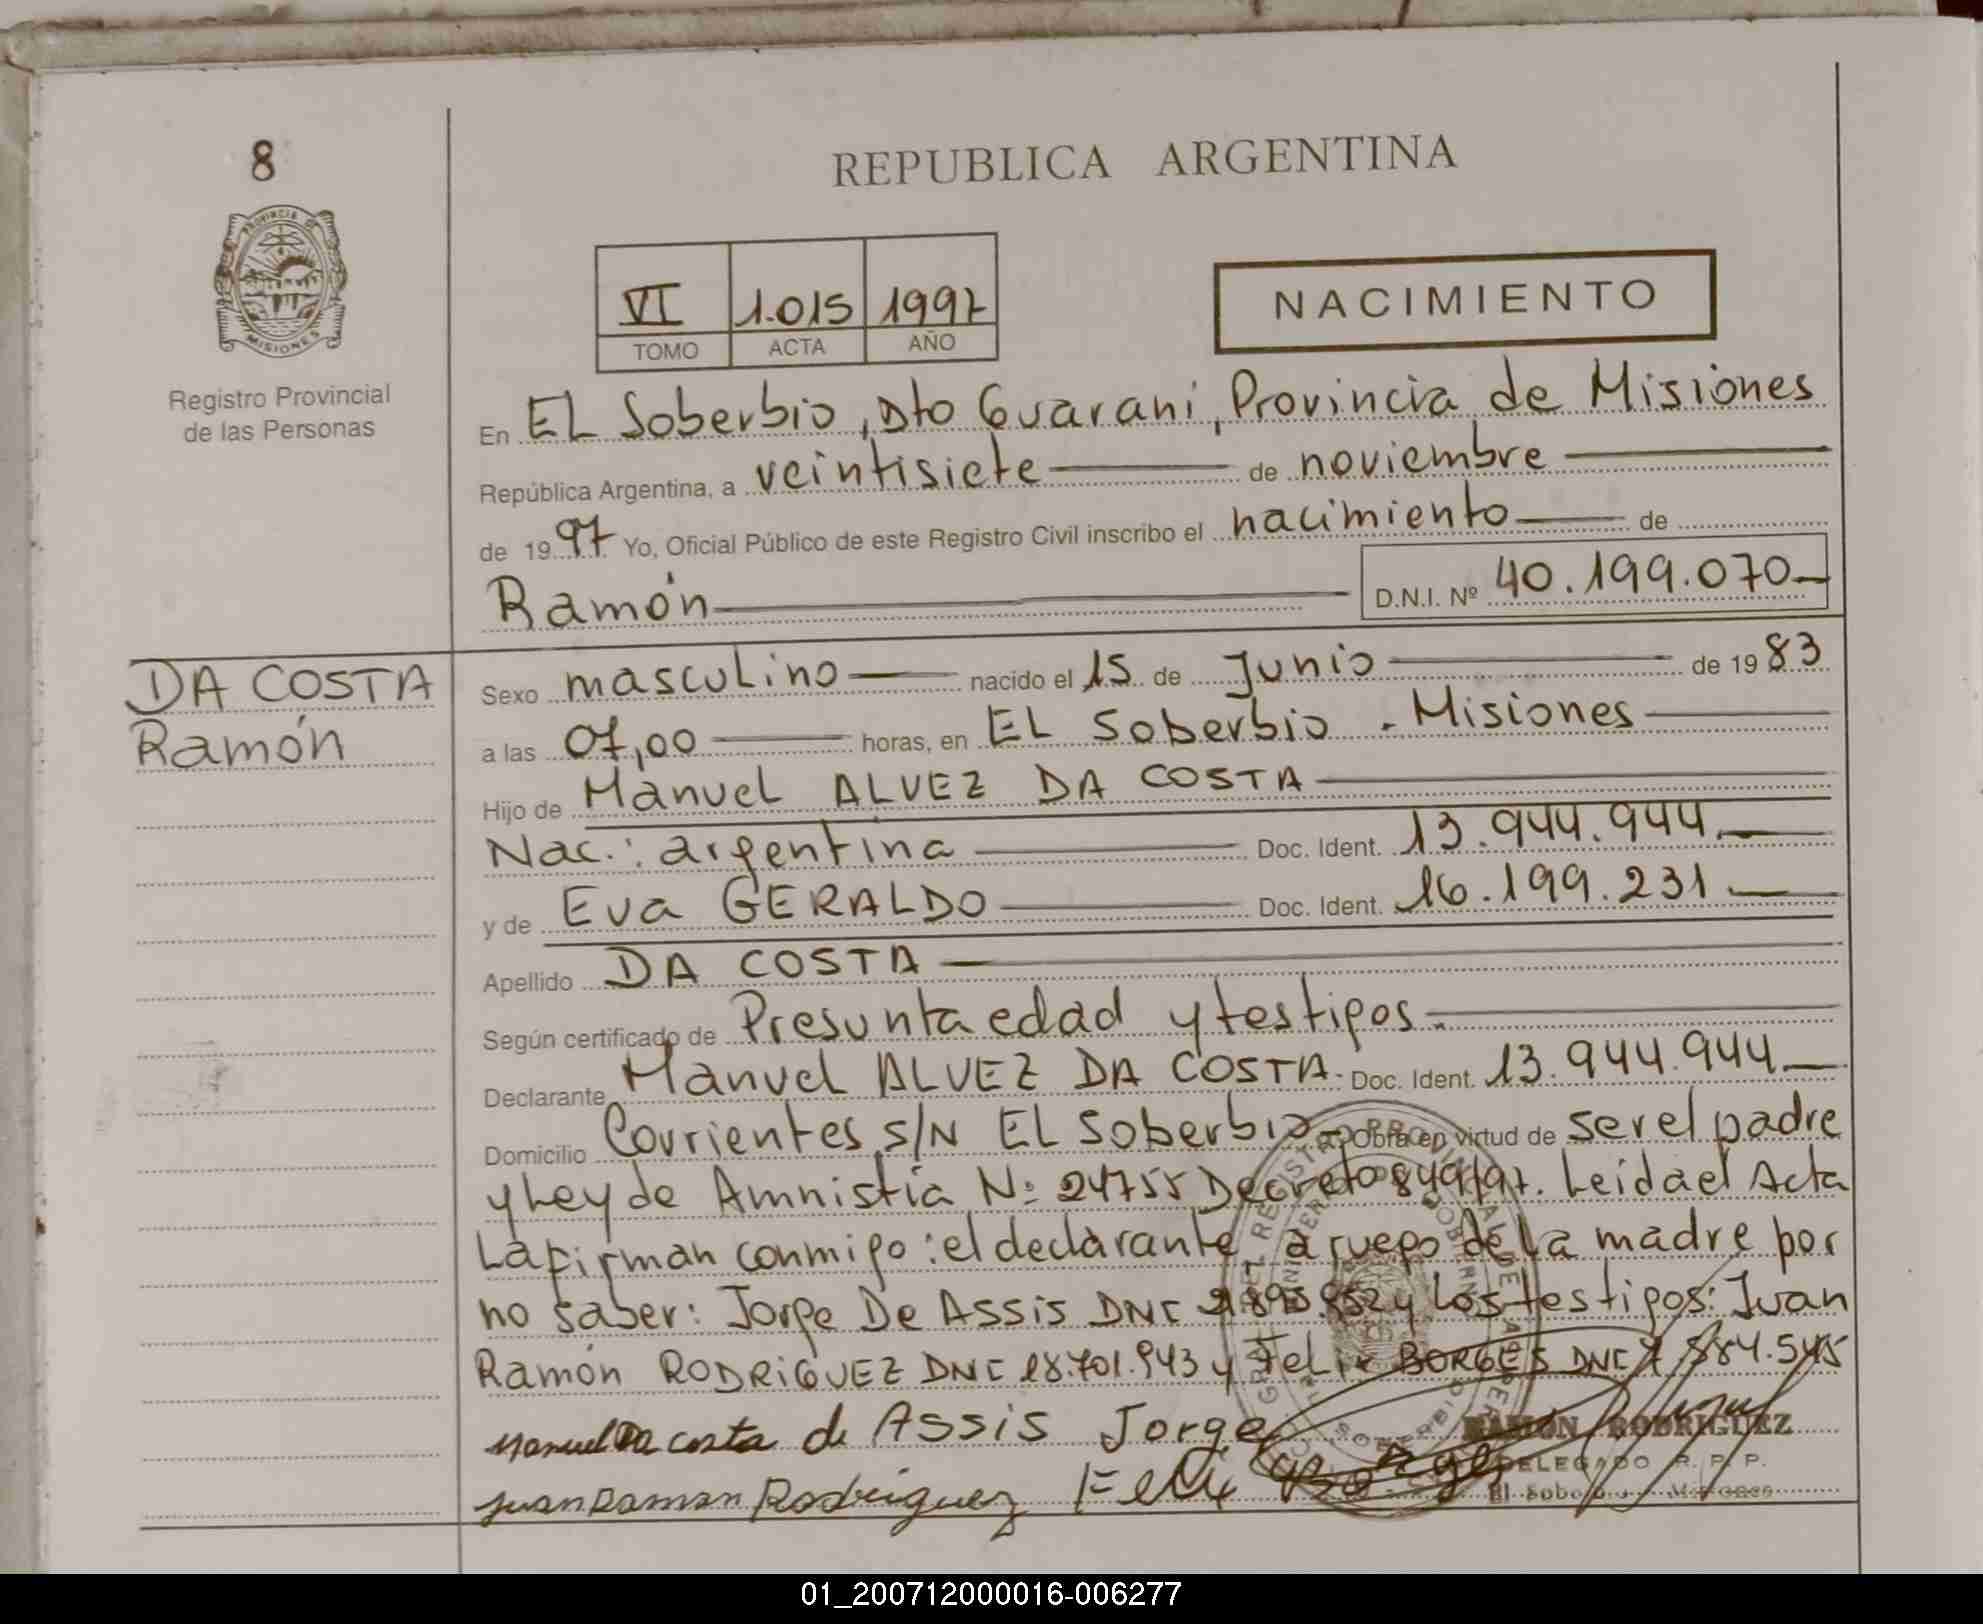 8
PROVINCIA DE
MISIONES
Registro Provincial
de las Personas
REPUBLICA ARGENTINA
VI 1.015 1997
TOMO ACTA AÑO
NACIMIENTO
En EL Soberbio, Dto Guarani, Provincia de Misiones
República Argentina, a veintisiete de noviembre
de 1997 Yo, Oficial Público de este Registro Civil inscribo el nacimiento de
Ramón D.N.I. Nº 40.199.070
DA COSTA
Ramón
Sexo masculino nacido el 15 de Junio de 1983
a las 07,00 horas, en EL Soberbio - Misiones
Hijo de Manuel ALVEZ DA COSTA
Nac.: argentina Doc. Ident. 13.944.944
y de Eva GERALDO Doc. Ident. 16.199.231
Apellido DA COSTA
Según certificado de Presunta edad y testigos.
Declarante Manuel ALVEZ DA COSTA. Doc. Ident. 13.944.944
Domicilio Corrientes S/N EL Soberbio Obra en virtud de ser el padre
y Ley de Amnistia Nº 24755 Decreto 849/97. Leida el Acta
La firman conmigo: el declarante, a ruego de la madre por
no saber: Jorge De ASSIS DNI y Los testigos: Juan
Ramón RODRIGUEZ DNI 18.701.943 y Felix BORGES DNI 7.884.545
Manuel Da costa de Assis Jorge
Juan Ramon Rodriguez Felix Borges
RAMÓN RODRIGUEZ
DELEGADO R. P. P.
El Soberbio - Misiones
01_200712000016-006277